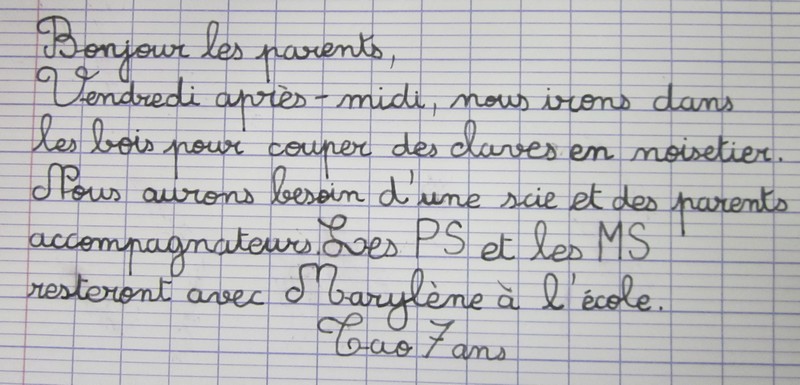 Bonjour les parents,
Vendredi après-midi, nous irons dans
les bois pour couper des claves en noisetier.
Nous aurons besoin d'une scie et des parents
accompagnateurs. Les PS et les MS
resteront avec Marylène à l'école.
Tao 7 ans